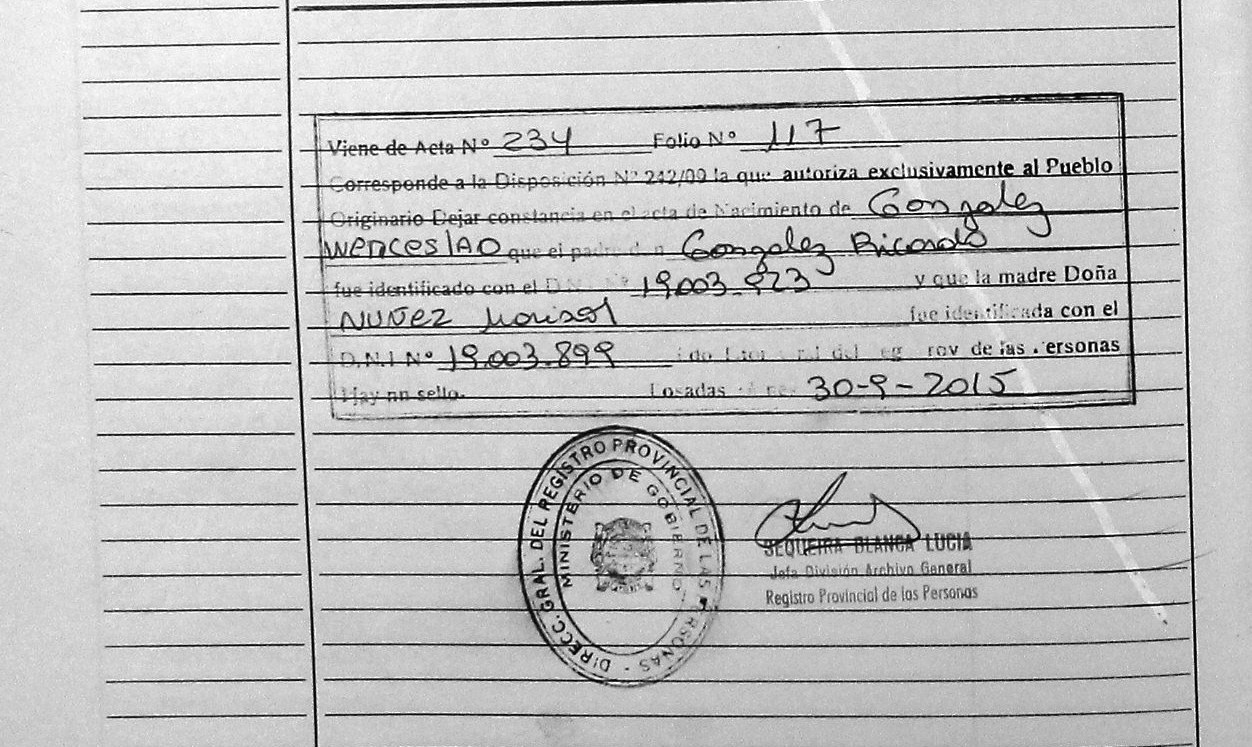 Viene de Acta Nº 234 Folio Nº 117
Corresponde a la Disposición Nº 242/00 la que autoriza exclusivamente al Pueblo
Originario Dejar constancia en el acta de Nacimiento de Gonzalez
Wenceslao que el padre Gonzalez Ricardo
fue identificado con el D.N.I Nº 19.003.923 y que la madre Doña
NUÑEZ Marisol fue identificada con el
D.N.I Nº 19.003.899 del rov de las ersonas
Hay un sello. Posadas 30-9-2015
DIRECC. GRAL. DEL REGISTRO PROVINCIAL DE LAS PERSONAS
MINISTERIO DE GOBIERNO
SEQUEIRA BLANCA LUCIA
Jefa División Archivo General
Registro Provincial de las Personas